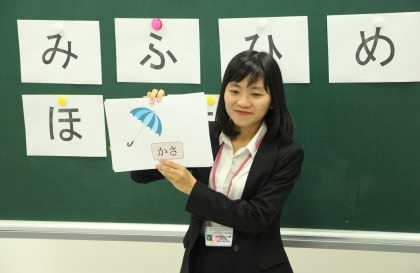 み ふ ひ め
ほ
かさ